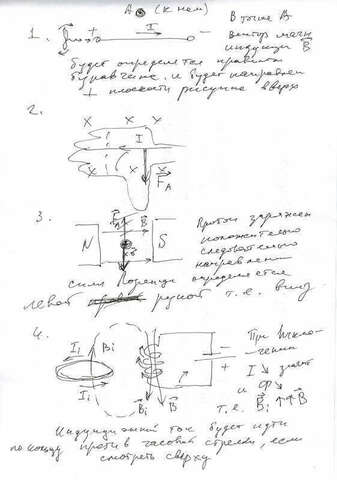 А (к нам)
1. I
+ −
В точке А
вектор магн
индукции B
будет определятся правилом
буравчика. и будет направлен
⊥ плоскости рисунка вверх
2.
X X X
I
X X
F_A
3.
N S
B
Протон заряжен
положительно
следовательно
направление
силы Лоренца определяется
левой рукой т.е. вниз
4.
I_i B_i
I_i B_i B
− +
При выклю-
чении
I ↘ значит
и Ф ↘
т.е. B_i ↑↑ B
Индукционный ток будет идти
по кольцу против часовой стрелки, если
смотреть сверху